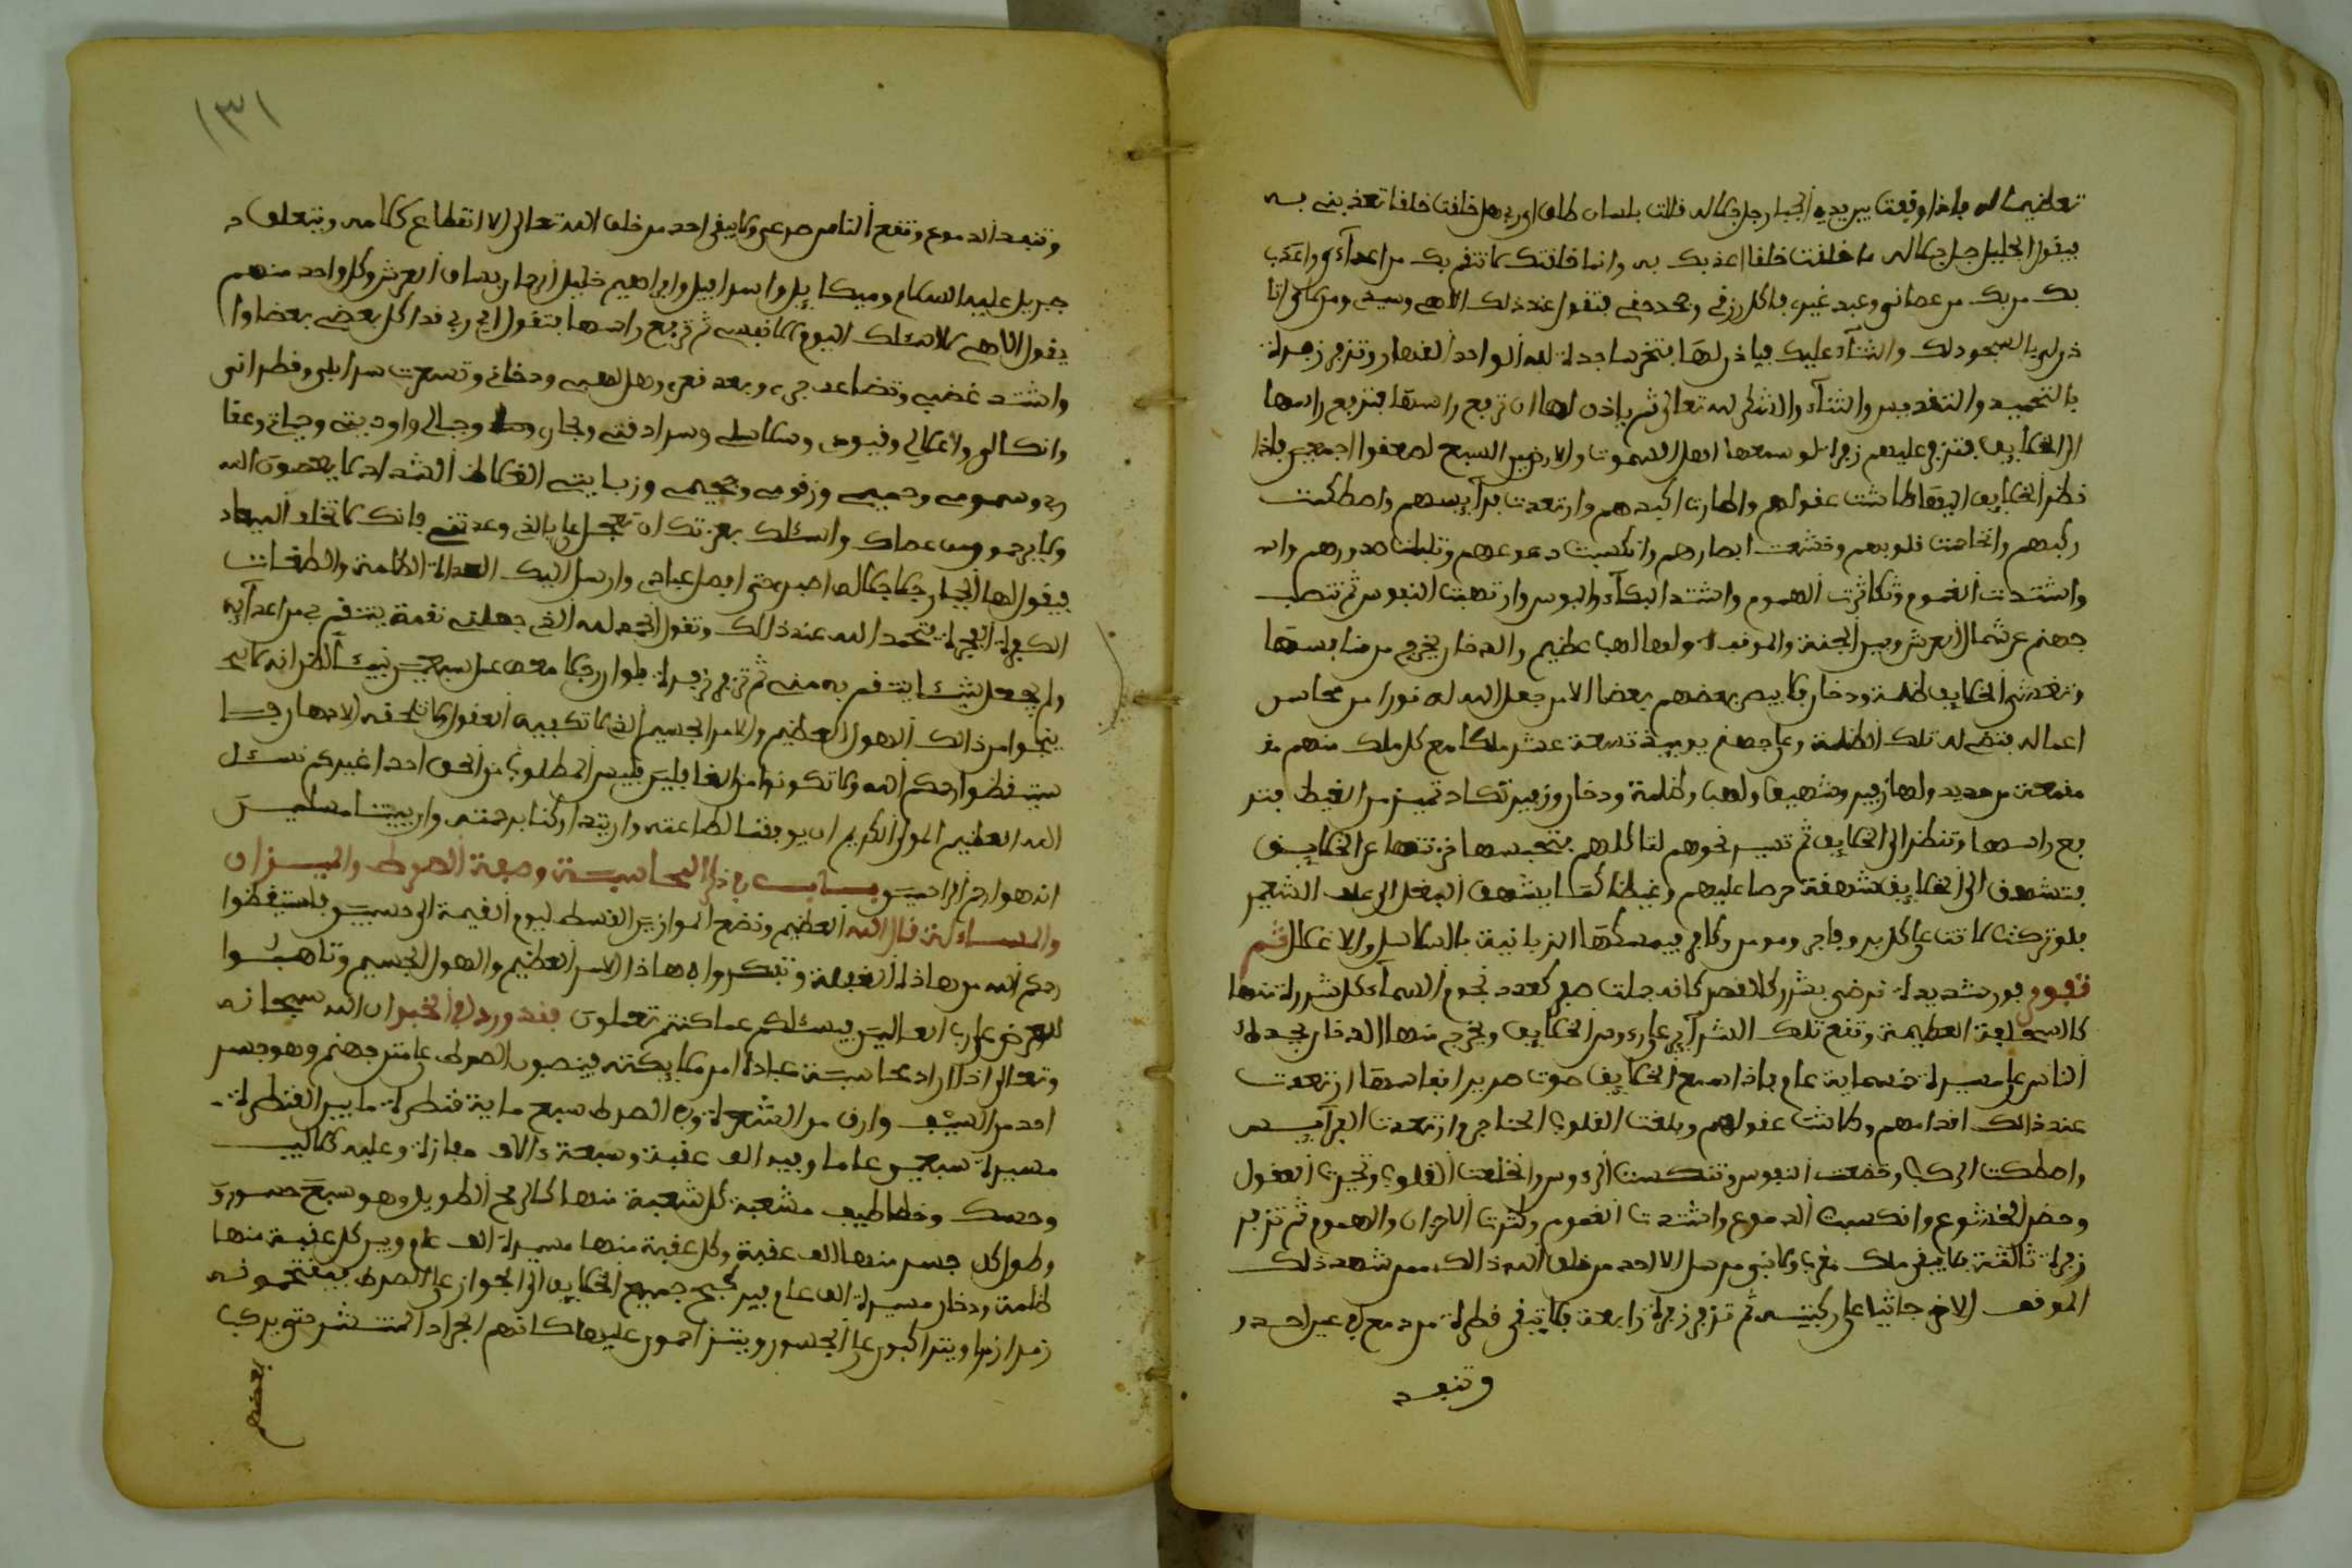 تعظيما له فاذا وقعت بين يدي الجبار جل جلاله قالت بلسان طلق اي ربي هل خلقت خلقا تعذبني به
فيقول الجليل جل جلاله ما خلقت خلقا اعذبك به وانما خلقتك لانتقم بك من اعداءي واعذب
بك من عصاني وعبد غيري فاكل رزقي وجحد حقي فتقول عند ذلك الاهي وسيدي ومولاي اتا
ذن لي بالسجود لك والثناء عليك فياذن لها فتخر ساجدة لله الواحد القهار وتزفر زفرة
بالتحميد والتقديس والثناء والشكر لله تعالى ثم ياذن لها ان ترفع راسها فترفع راسها
الى الخلايق فتزفر عليهم زفرة لو سمعها اهل السموت والارضين السبع لصعقوا اجمعين فاذا
نظر الخلايق اليها طاشت عقولهم وطارت اكبدهم وارتعدت فرآيسهم واصطكت
ركبهم وانخلعت قلوبهم وخشعت ابصارهم وانكسبت دموعهم وتبلبلت صدورهم
واشتدت الغموم وتكاثرت الهموم واشتد البكآء والبوس وارتهبت النفوس ثم تنصب
جهنم عن شمال العرش وبين الجنة والموقف ولها لهب عظيم والدخان يخرج من
وتغشى الخلايق ظلمة ودخان فلا يبصر بعضهم بعضا الا من جعل الله له نورا من محاسن
اعماله فتضيء له تلك الظلمة وعلى جهنم يوميذ تسعة عشر ملكا مع كل ملك منهم مقـ
مقمعة من حديد ولها زفير وشهيق ولهب وظلمة ودخان وزفير تكاد تميز من الغيظ فتر
فع راسها وتنظر الى الخلايق ثم تسير نحوهم لتاكلهم فتحبسها خزنتها عن الخلايق
فتشهق الى الخلايق شهقة حرصا عليهم وغيظا كما يشهق البغل الى علف الشعير
فلو تركت لاتت على كل بر وفاجر ومومن وكافر فيمسكها الزبانية بالسلاسل والاغلال ثم
تفور فورة شديدة ترمي بشرر كالقصر كانه جملت صفر كعدد نجوم السمآء كل شررة منها
كالسحابة العظيمة وتقع تلك الشرآير على روس الخلايق ويخرج منها الدخان
الناس على مسيرة خمسماية عام فاذا سمع الخلايق صوت صرير انفاسها ارتعدت
عند ذالك اقدامهم وطاشت عقولهم وبلغت القلوب الحناجر وارتعدت الفرآيس
واصطكت الركب وخضعت النفوس وتنكست الروس وانخلعت القلوب وتحيرت العقول
وحضر الخشوع وانكسبت الدموع واشتدت الغموم وكثرت الاحزان والهموم ثم تزفر
زفرة ثالثة فلا يبقى ملك مقرب ولا نبي مرسل الا احد من خلق الله ذالك ممن شهد ذلك
الموقف الا خر جاثيا على ركبتيه ثم تزفر زفرة رابعة فلا تبقى قطرة من دمع في عين احد و
وتنفد
١٣١
وتنفد الدموع وتقع الناس صرعى ولا يبقى احد من خلق الله تعالى الا انقطاع كلامه ويتعلق
جبريل عليه السلام وميكاييل واسرافيل وابراهيم خليل الرحمان بساق العرش وكل واحد منهم
يقول الاهي لا اسئلك اليوم الا نفسي ثم ترفع راسها فتقول اي ربي قد اكل بعضي بعضا وا
واشتد غضبي وتضاعد حري وبعد قعري وهل لهبي ودخاني وتسعرت سرابلي وقطراني
وانكالي واغلالي وقيودي وسلاسلي وسرادقي وبحاري وجبالي واوديتي وحياتي وعقا
ربي وسمومي وحميمي وزقومي وجحيمي وزبانيتي الغلاظ الشداد لا يعصون الله
ولا يرحمون من عصاك واسئلك بعزتك ان تعجل علي بالذي وعدتني فانك لا تخلف الميعاد
فيقول لها الجبار جل جلاله اصبري حتى افصل عبادي وارسل اليك العداة الظلمة والطغات
الكفرة الفجرة فتحمد الله عند ذالك وتقول الحمد لله الذي جعلني نقمة ينتقم بي من اعدآيه
ولم يجعل شيئا ينتقم به مني ثم تزفر زفرة فلو ان رجلا معه عمل سبعين نبيئا لظن انه لا
ينجوا من ذالك الهول العظيم والامر الجسيم الذي لا تكيفه العقول ولا تلحقه الابصار
ستيقظوا رحمكم الله ولا تكونوا من الغافلين فليس المطلوب من الحق احدا غيركم نسئل
الله العظيم المولى الكريم ان يوفقنا لطاعته وان يتداركنا برحمته وان يميتنا مسلمين
انه هو ارحم الراحمين باب في ذكر المحاسبة وصفة الصرط والميزان
والمساءلة قال الله العظيم ونضع الموازين القسط ليوم القيمة الى حسيبين فاستيقظوا
رحمكم الله من هاذه الغفلة وتفكروا في هاذا الامر العظيم والهول الجسيم وتاهبوا
للعرض على رب العالمين فيسئلكم عما كنتم تعملون فقد ورد في الخبر ان الله سبحانه
وتعالى اذا اراد محاسبة عباده امر ملايكته فينصبون الصرط على متن جهنم وهو جسر
احد من السيف وارق من الشعرة وفي الصرط سبع ماية قنطرة ما بين القنطرة
مسيرة سبعين عاما وفيه الف عقبة وسبعة ءالاف مفازة وعليه كلاليب
وحسك وخطاطيف مشعبة كل شعبة منها كالرمح الطويل وهو سبع جسور و
وطول كل جسر منها الف عقبة وكل عقبة منها مسيرة الف عام وبين كل عقبة منها
ظلمة ودخان مسيرة الف عام جميع الخلايق الى الجواز على الصرط فيقتحمونه
زمرا زمرا ويتراكبون على الجسور ويتزاحمون عليها كانهم الجراد المنتشر حتى يركب
بعضهم